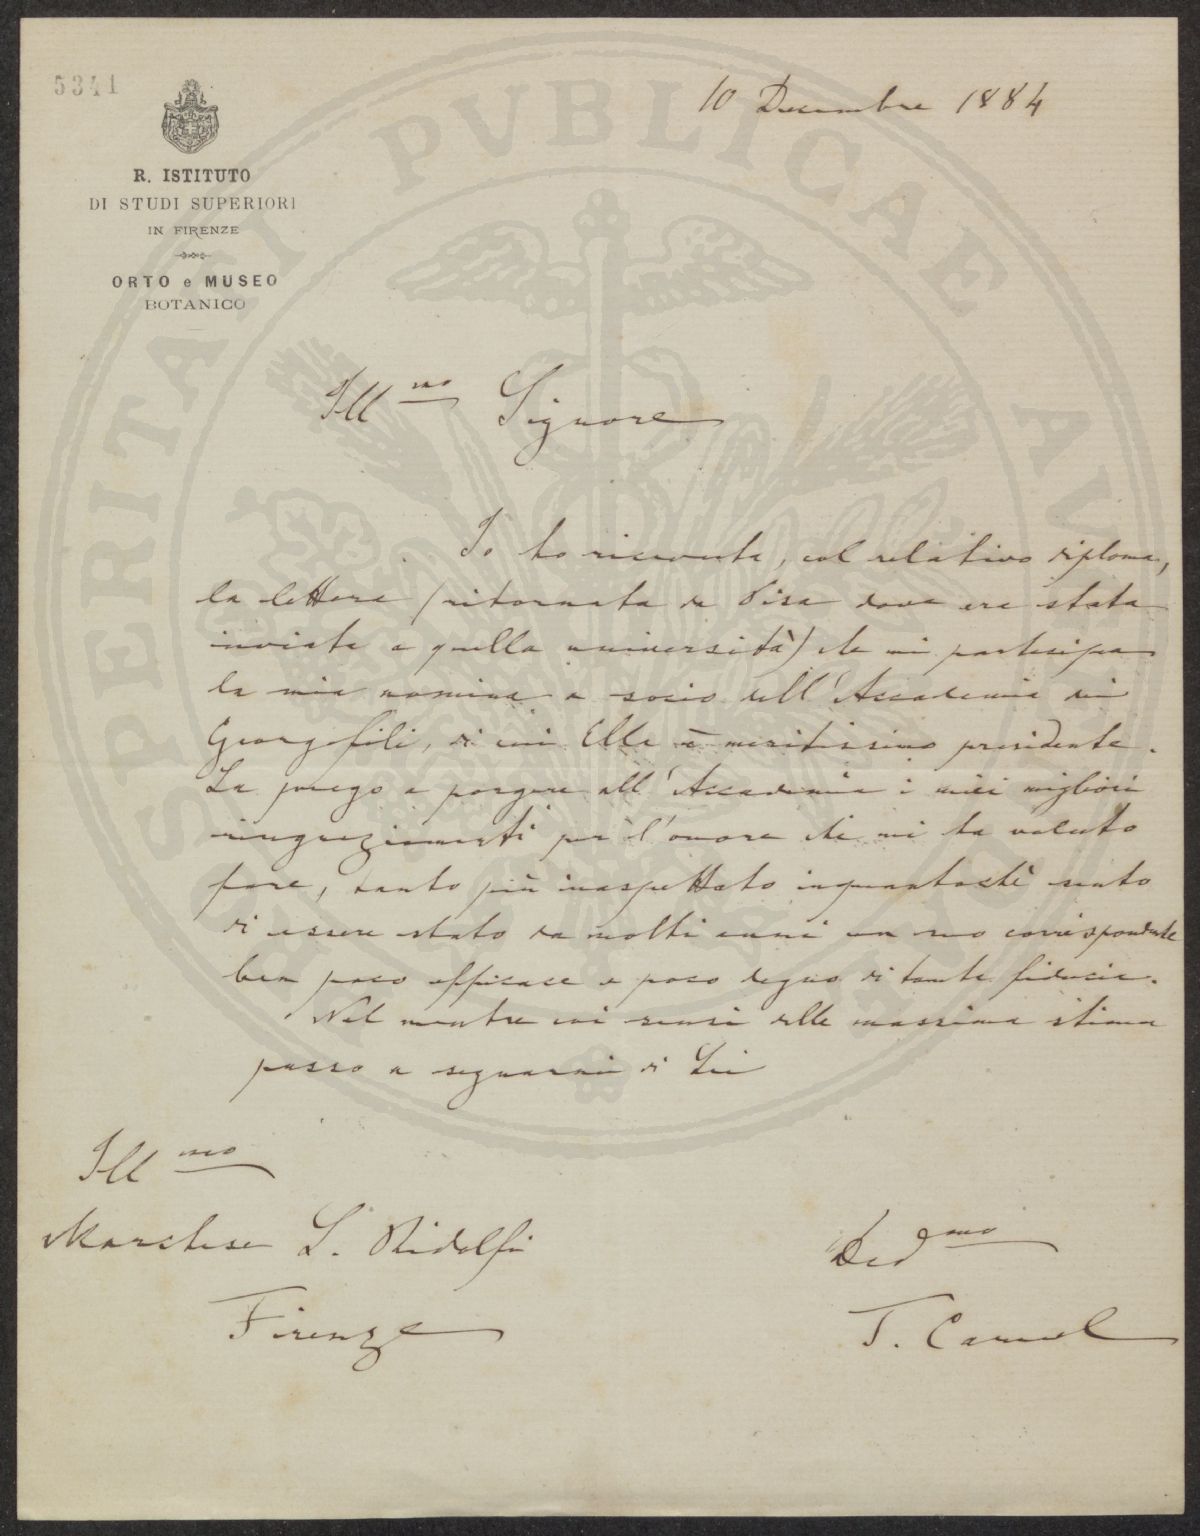 5341
10 Decembre 1884
R. ISTITUTO
DI STUDI SUPERIORI
IN FIRENZE
ORTO e MUSEO
BOTANICO
Ill mo Signore
Io ho ricevuta, col relativo diploma,
la lettera (ritornata da Pisa dove era stata
inviata a quella università) che mi partecipa
la mia nomina a socio dell'Accademia dei
Georgofili, di cui Ella è meritissimo presidente.
La prego a porgere all'Accademia i miei migliori
ringraziamenti per l'onore che mi ha voluto
fare, tanto più inaspettato inquantochè sento
di essere stato da molti anni un suo corrispondente
ben poco efficace e poco degno di tanta fiducia.
Nel mentre coi sensi della massima stima
passo a segnarmi di Lei
Ill mo
Marchese L. Ridolfi
Firenze
Ded mo
T. Caruel
PROSPERITATI PVBLICAE AVGENDAE